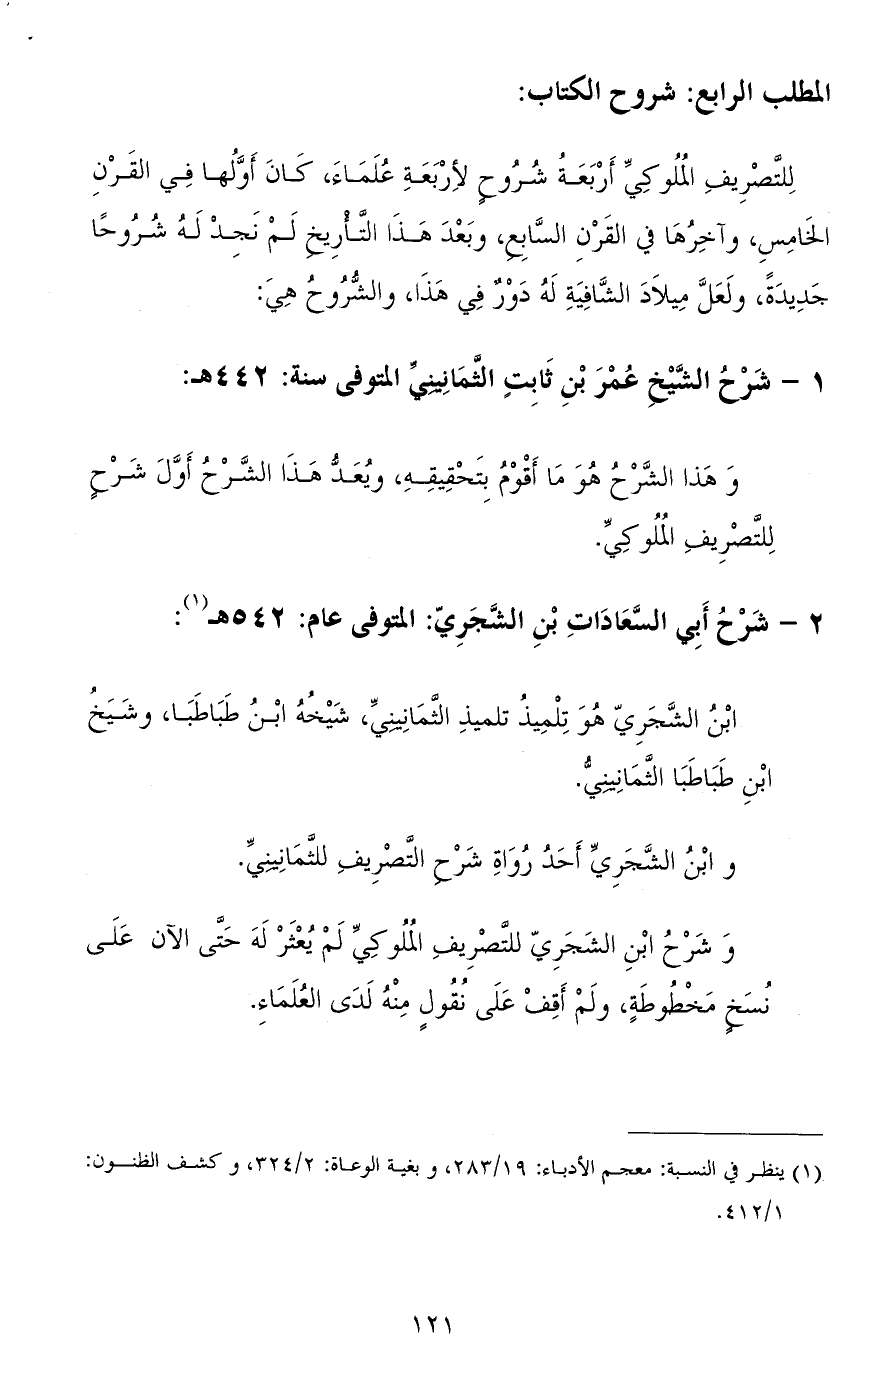 المطلب الرابع: شروح الكتاب:
لِلتَّصْرِيفِ الْمُلُوكِيِّ أَرْبَعَةُ شُرُوحٍ لِأَرْبَعَةِ عُلَمَاءَ، كَانَ أَوَّلُهـا فِـي القَـرْنِ
الخَامِسِ، وآخِرُهَا في القَرْنِ السَّابِعِ، وبَعْدَ هَـذَا التَّـأْرِيخِ لَـمْ نَجِـدْ لَـهُ شُرُوحًا
جَدِيدَةً، ولَعَلَّ مِيلاَدَ الشَّافِيَةِ لَهُ دَوْرٌ فِي هَذَا، والشُّرُوحُ هِيَ:
١ - شَرْحُ الشَّيْخِ عُمَرَ بْنِ ثَابِتٍ الثَّمَانِينِيِّ المتوفى سنة: ٤٤٢هـ:
وَ هَذا الشَّرْحُ هُوَ مَا أَقُوْمُ بِتَحْقِيقِـهِ، ويُعَـدُّ هَـذَا الشَّرْحُ أَوَّلَ شَرْحٍ
لِلتَّصْرِيفِ الْمُلُوكِيِّ.
٢ - شَرْحُ أَبِي السَّعَادَاتِ بْنِ الشَّجَرِيّ: المتوفى عام: ٥٤٢هـ(١):
ابْنُ الشَّجَرِيّ هُوَ تِلْمِيذُ تلميذِ الثَّمَانِينِيِّ، شَيْخُهُ ابْـنُ طَبَاطَبَـا، وشَـيَخُ
ابْنِ طَبَاطَبَا الثَّمَانِينِيُّ.
و ابْنُ الشَّجَرِيِّ أَحَدُ رُوَاةِ شَرْحِ التَّصْرِيفِ للثَّمَانِينِيِّ.
وَ شَرْحُ ابْنِ الشَجَرِيّ للتَّصْرِيفِ الْمُلُوكِيِّ لَمْ يُعْثَرْ لَهَ حَتَّى الآن عَلَـى
نُسَخٍ مَخْطُوطَةٍ، ولَمْ أَقِفْ عَلَى نُقُولٍ مِنْهُ لَدَى العُلَمَاءِ.
(١) ينظـر في النسبة: معجـم الأدبـاء: ٢٨٣/١٩، و بغية الوعـاة: ٣٢٤/٢، و كشـف الظنـون:
٤١٢/١.
١٢١